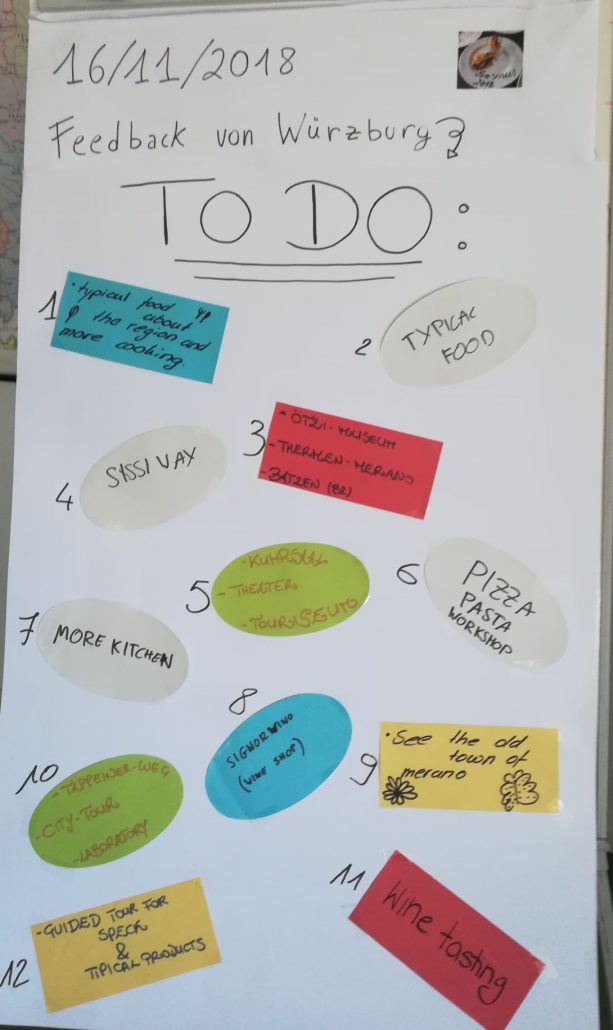 16/11/2018
Feedback von Würzburg
TO DO:
1
• typical food
about
the region and
more cooking.
2
TYPICAL
FOOD
3
- ÖTZI-MUSEUM
- THERMEN-MERANO
- BATZEN (BZ)
4
SISSI VAX
5
- KUHRSAAL
- THEATER
- TOURISEUM
6
PIZZA
PASTA
WORKSHOP
7
MORE KITCHEN
8
SIGNORVINO
(WINE SHOP)
9
• See the old
town of
merano
10
- TAPPEINER-WEG
- CITY-TOUR
- LABORATORY
11
Wine tasting
12
- GUIDED TOUR FOR
SPECK
&
TIPICAL PRODUCTS